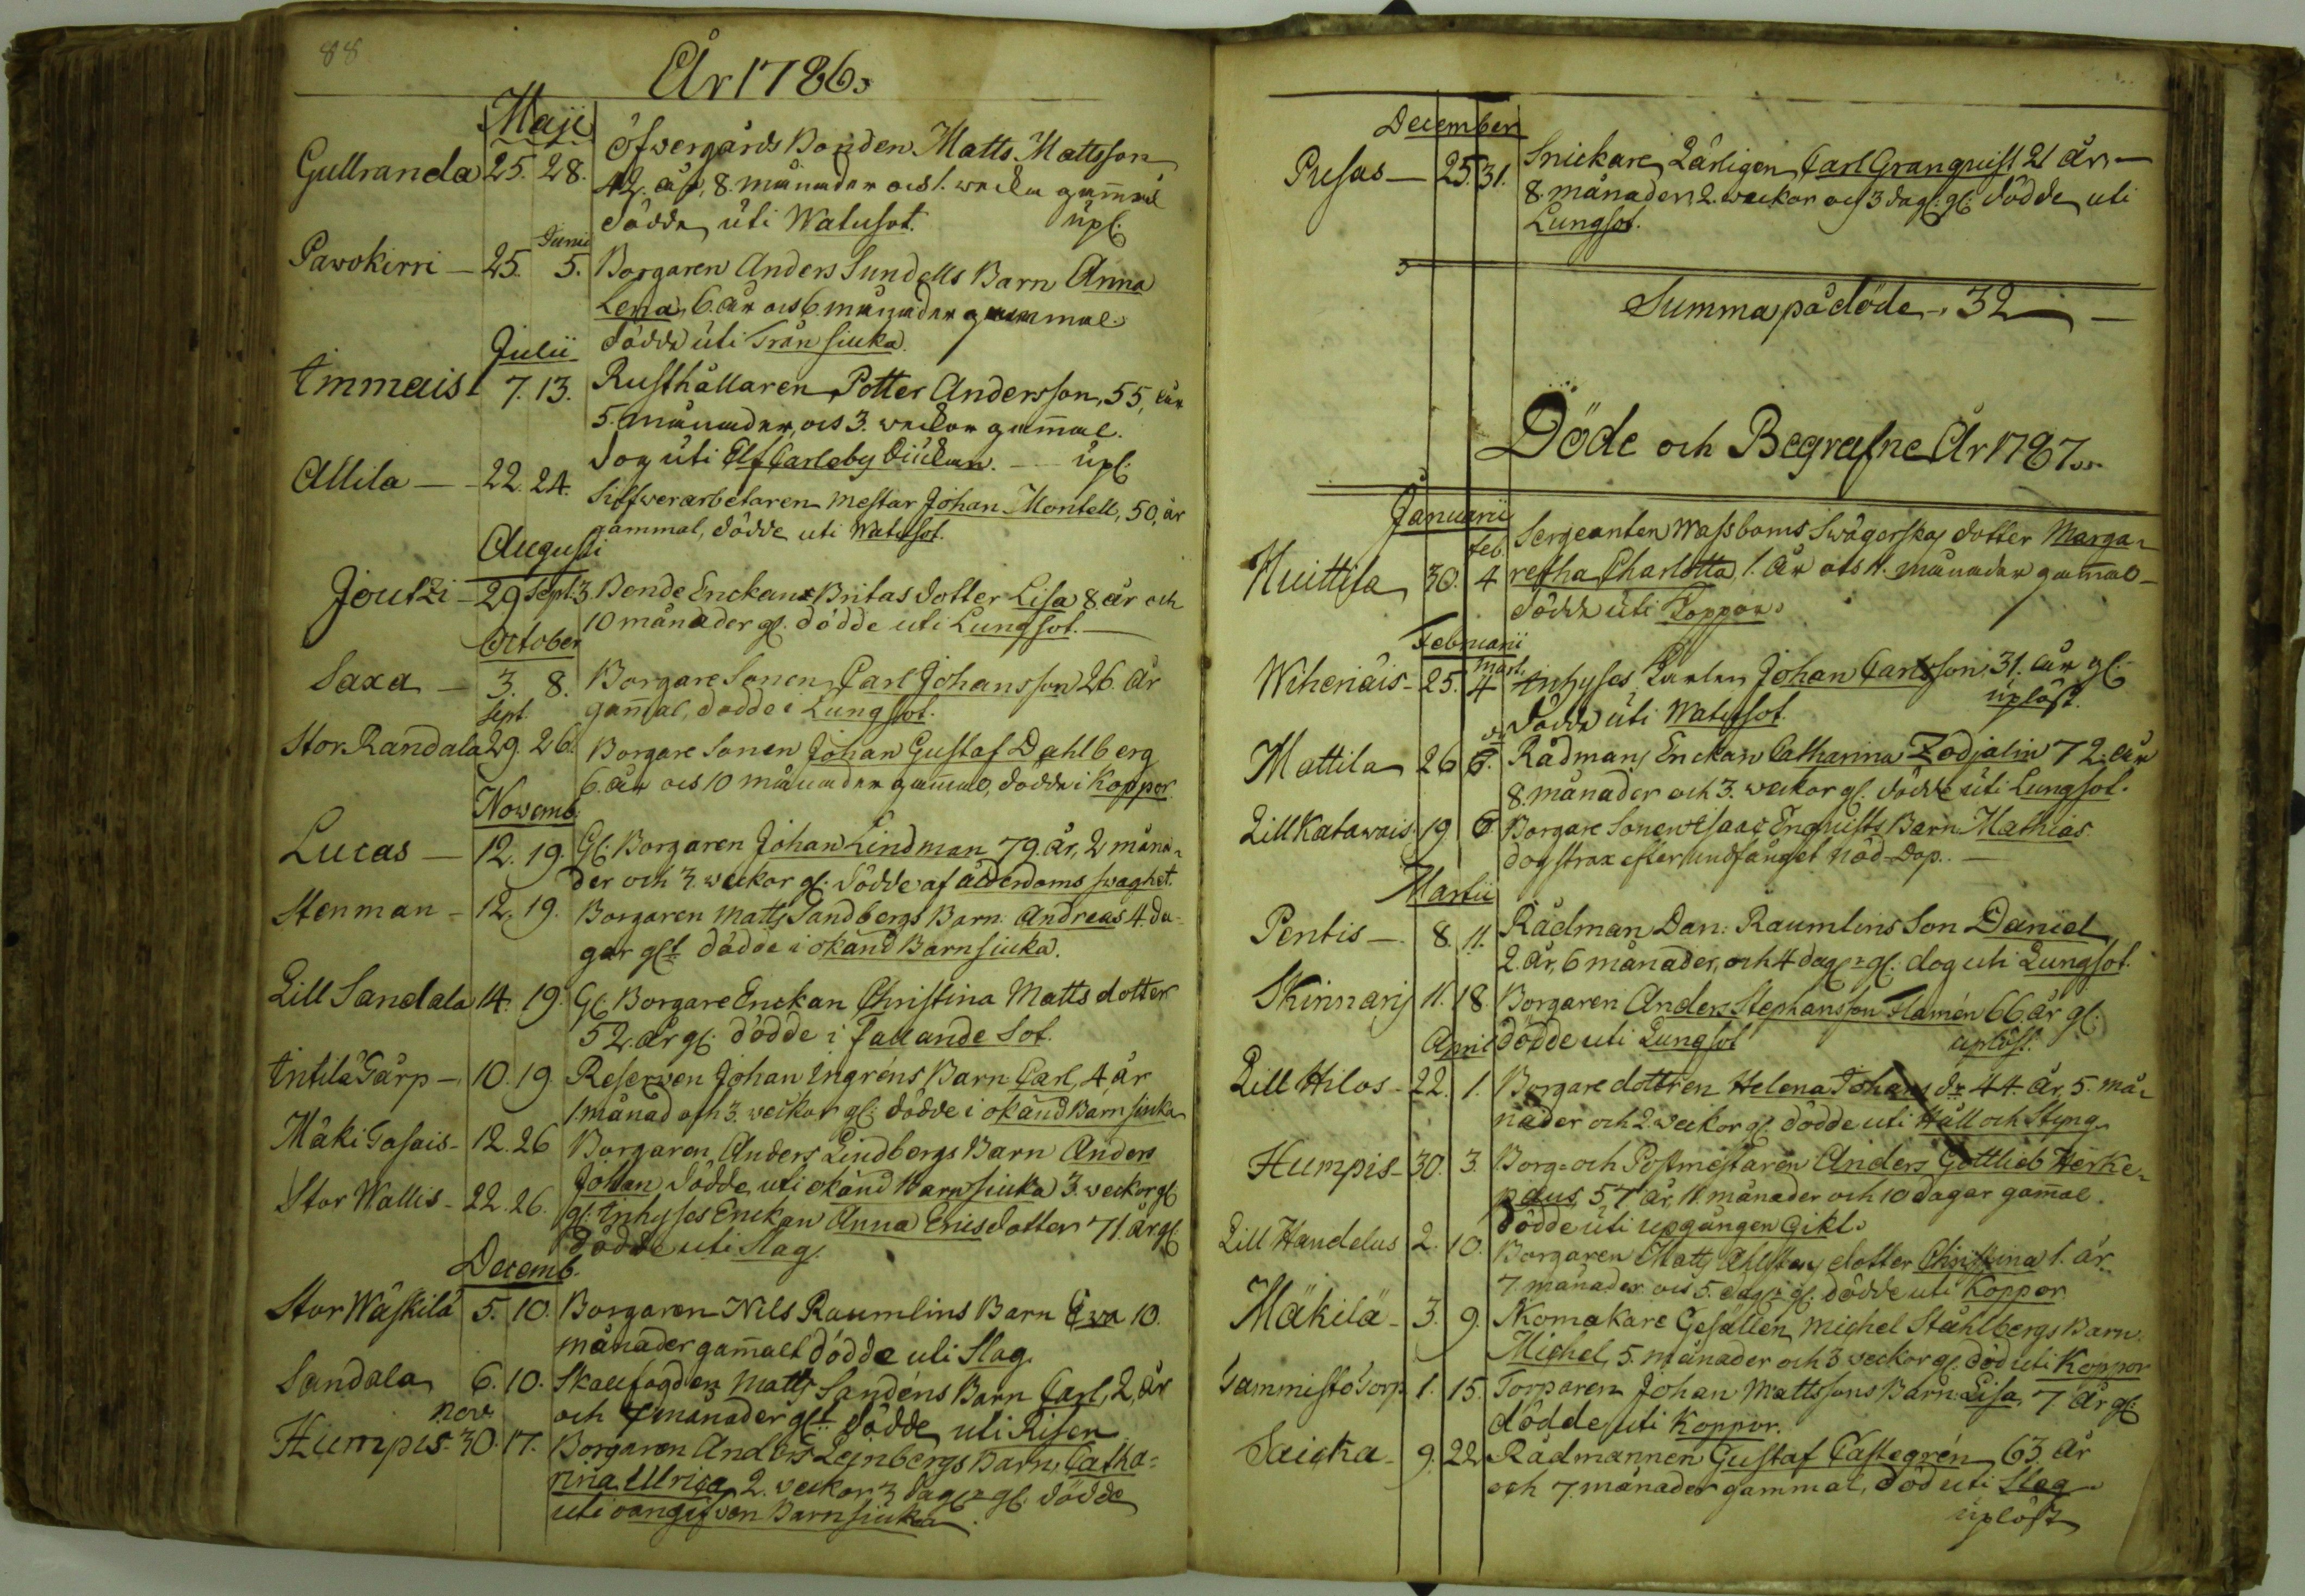 88
År 1786.
Maji
Gullranda 25. 28. Öfwergårds Bonden Matts Mattsson
42. år, 8. månader och 1. wecka gam̅al
dödde uti Watusot. upl:
Junii
Pawokirri – 25. 5. Borgaren Anders Sundells Barn Anna
Lena, 6. år och 6. månader gammal.
dödde uti Trånsiuka.
Julii
Immais 7. 13. Rusthållaren Petter Andersson, 55, år
5. månader, och 3. weckor gam̅al.
dog uti Elf Carleby Siukan. upl:
Allila – 22. 24. Silfwerarbetaren mestar Johan Montell, 50, år
gammal, dödde uti Watusot.
Augusti
Joutzi – 29 Sept: 3 Bonde Enckans Britas dotter Lisa 8 år och
10 månader gl. dödde uti Lungsot.
October
Saxa – 3. 8. Borgare Sonen Carl Johansson 26. år
gam̅al, dödde i Lungsot.
Sept
Stor Randala 29. 26. Borgare Sonen Johan Gustaf Dahlberg
6. år och 10 månader gam̅al, dödde i Koppor
Novemb:
Lucas – 12. 19. Gl: Borgaren Johan Lindman 79. år, 2 måna-
der och 3. weckor gl: dödde af ålderdoms swaghet.
Stenman – 12. 19. Borgaren Matts Sandbergs Barn: Andreas 4. da-
gar glt dödde i okänd Barnsiuka.
Lill Sandala 14. 19. Gl: Borgare Enckan Christina Matts dotter
52. år gl: dödde i fallande Sot.
Intilä Tårp – 10. 19. Reserven Johan Ingréns Barn Carl, 4 år
1 månad och 3. weckor gl: dödde i okänd Barnsiuka
Mäki Tasais – 12. 26 Borgaren Anders Lindbergs Barn Anders
Johan dödde uti okänd Barnsiuka 3. weckor gl:
Stor Wallis – 22. 26. gl: Inhyses Enckan Anna Ericsdotter 71. år gl:
dödde uti Slag.
Decemb.
Stor Wäskilä 5. 10. Borgaren Nils Raumlins Barn Ewa 10.
månader gam̅alt dödde uti Slag.
Sandala 6. 10. Skallfogden Matts Sandéns Barn Carl, 2, år
och 7 månader glt dödde uti Risen
nov
Humpis 30. 17. Borgaren Anders Leinbergs Barn Catha=
rina Ulrica 2. weckor 3 dagr gl. dödde
uti oangifwen Barnsiuka.
December
Pusas – 25. 31. Snickare Lärligen Carl Granquist 21 år,
8. månader, 2. weckor och 3 dag: gl: dödde uti
Lungsot.
Summa på döde – 32
Döde och Begrafne År 1787.
Januarii
feb.
Huittila 30. 4 Sergeanten Wassboms Swägerskas dotter Marga-
retha Charlotta, 1. år och 11. månader gam̅al
dödde uti Koppor.
Februarii
Mart.
Wiheriäis – 25. 4 Inhyses Karlen Johan Carlsson, 31. år gl:
dödde uti Watusot. uplöst.
Mattila 26 6. Rådmans Enckan Catharina Zodjalin 72. år
8. månader och 3. weckor gl. dödde uti Lungsot.
Lill Katawais 19 6. Borgare Sonen Isaac Enquists Barn Mathias
dog strax efter undfånget nöd-Dop.
Martii
Pentis – 8. 11. Rådman Dan: Raumlins Son Daniel
2. år, 6 månader, och 4 dagr gl: dog uti Lungsot.
Skinnari 11. 18. Borgaren Anders Stephansson Flamén 66. år gl:
dödde uti Lungsot uplöst.
April
Lill Hilos – 22. 1. Borgare dottren Helena Johans dr 44. år, 5. må-
nader och 2. weckor gl. dödde uti Håll och Styng.
Humpis – 30. 3. Borg- och Postmestaren Anders Gottlieb Herke-
paus 57 år, 11. månader och 10 dagar gam̅al.
dödde uti upgången Gikt.
Lill Handelus 2. 10. Borgaren Matts Ahlstens dotter Christina 1. år
7. månader och 5. dagr gl. dödde uti Koppor.
Mäkilä – 3. 9. Skomakare Gesällen Michel Ståhlbergs Barn
Michel, 5. månader och 3 weckor gl. död uti Koppor
Tammisto Torp 1. 15. Torparen Johan Mattssons Barn Lisa 7 år gl:
dödde uti Koppor.
Saicka – 9. 22 Rådmannen Gustaf Castegrén 63. år
och 7. månader gammal, död uti Slag
uplöst